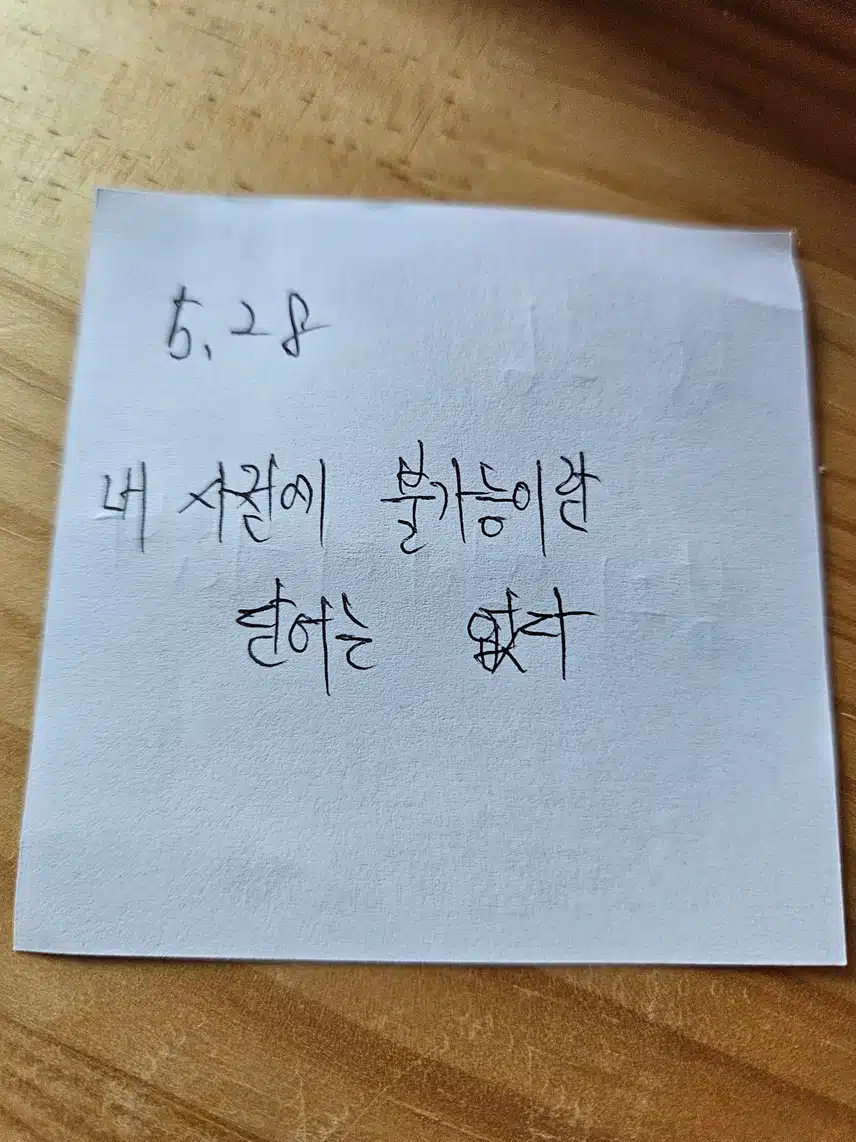 5.28
내 사전에 불가능이란
단어는 없다